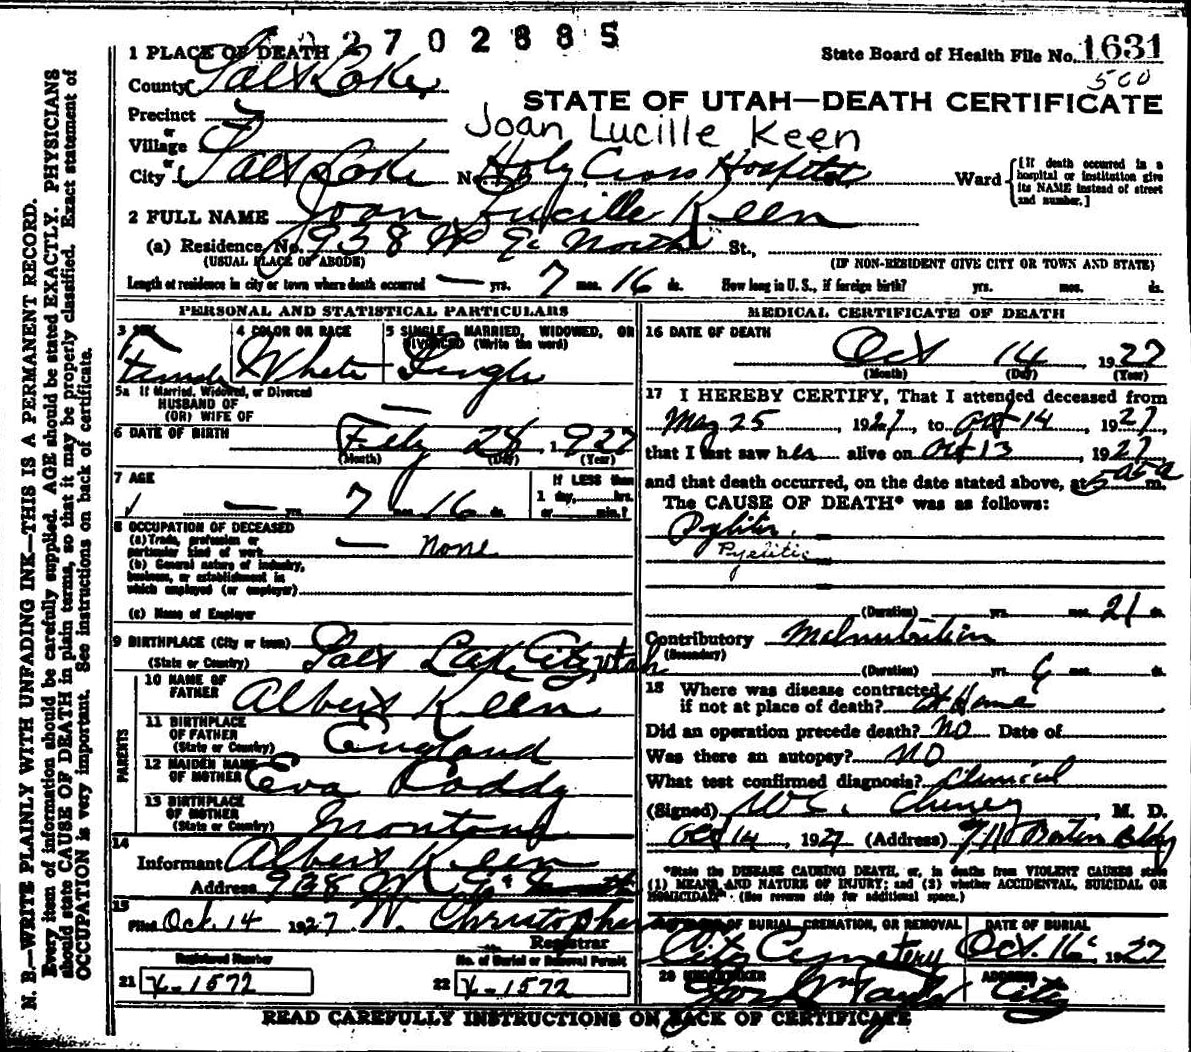 2702885
1 PLACE OF DEATH
State Board of Health File No. 1631
County Salt Lake
500
STATE OF UTAH—DEATH CERTIFICATE
Precinct
Joan Lucille Keen
or
Village
or
City Salt Lake No. Holy Cross Hospital Ward
[If death occurred in a
hospital or institution give
its NAME instead of street
and number.]
2 FULL NAME Joan Lucille Keen
(a) Residence. No. 938 W North St.,
(USUAL PLACE OF ABODE) (IF NON-RESIDENT GIVE CITY OR TOWN AND STATE)
Length of residence in city or town where death occurred — yrs. 7 mos. 16 ds. How long in U. S., if foreign birth? yrs. mos. ds.
PERSONAL AND STATISTICAL PARTICULARS
3 SEX 4 COLOR OR RACE 5 SINGLE, MARRIED, WIDOWED, OR
DIVORCED (Write the word)
Female White Single
5a If Married, Widowed, or Divorced
HUSBAND OF
(OR) WIFE OF —
6 DATE OF BIRTH Feby 28 1927
(Month) (Day) (Year)
7 AGE
IF LESS than
1 day, hrs.
or min.?
— yrs. 7 mos. 16 ds.
8 OCCUPATION OF DECEASED
(a) Trade, profession or
particular kind of work — none
(b) General nature of industry,
business, or establishment in
which employed (or employer)
(c) Name of Employer
9 BIRTHPLACE (City or town) Salt Lake City, Utah
(State or Country)
PARENTS
10 NAME OF
FATHER Albert Keen
11 BIRTHPLACE
OF FATHER
(State or Country) England
12 MAIDEN NAME
OF MOTHER Eva Roddy
13 BIRTHPLACE
OF MOTHER
(State or Country) Montana
14
Informant Albert Keen
Address 938 W
15
Filed Oct. 14 1927 W. Christopher
Registrar
Registered Number No. of Burial or Removal Permit
21 X-1572 22 X-1572
MEDICAL CERTIFICATE OF DEATH
16 DATE OF DEATH
Oct 14 1927
(Month) (Day) (Year)
17 I HEREBY CERTIFY, That I attended deceased from
May 25, 1927, to Oct 14, 1927,
that I last saw her alive on Oct 13 1927
and that death occurred, on the date stated above, at m.
The CAUSE OF DEATH* was as follows:
Pyelitis
Pyelitis
(Duration) yrs. mos. 21 ds.
Contributory Malnutrition
(Secondary)
(Duration) yrs. 6 mos. ds.
18 Where was disease contracted
if not at place of death? at Home
Did an operation precede death? no Date of
Was there an autopsy? NO
What test confirmed diagnosis? Clinical
(Signed) Cheney, M. D.
Oct 14, 1927 (Address) 711 Boston Bldg
*State the DISEASE CAUSING DEATH, or, in deaths from VIOLENT CAUSES state
(1) MEANS AND NATURE OF INJURY; and (2) whether ACCIDENTAL, SUICIDAL OR
HOMICIDAL. (See reverse side for additional space.)
OF BURIAL, CREMATION, OR REMOVAL DATE OF BURIAL
City Cemetery Oct. 16 1927
20 UNDERTAKER ADDRESS
Taylor City
READ CAREFULLY INSTRUCTIONS ON BACK OF CERTIFICATE
N. B.—WRITE PLAINLY WITH UNFADING INK—THIS IS A PERMANENT RECORD.
Every item of information should be carefully supplied. AGE should be stated EXACTLY. PHYSICIANS
should state CAUSE OF DEATH in plain terms, so that it may be properly classified. Exact statement of
OCCUPATION is very important. See instructions on back of certificate.